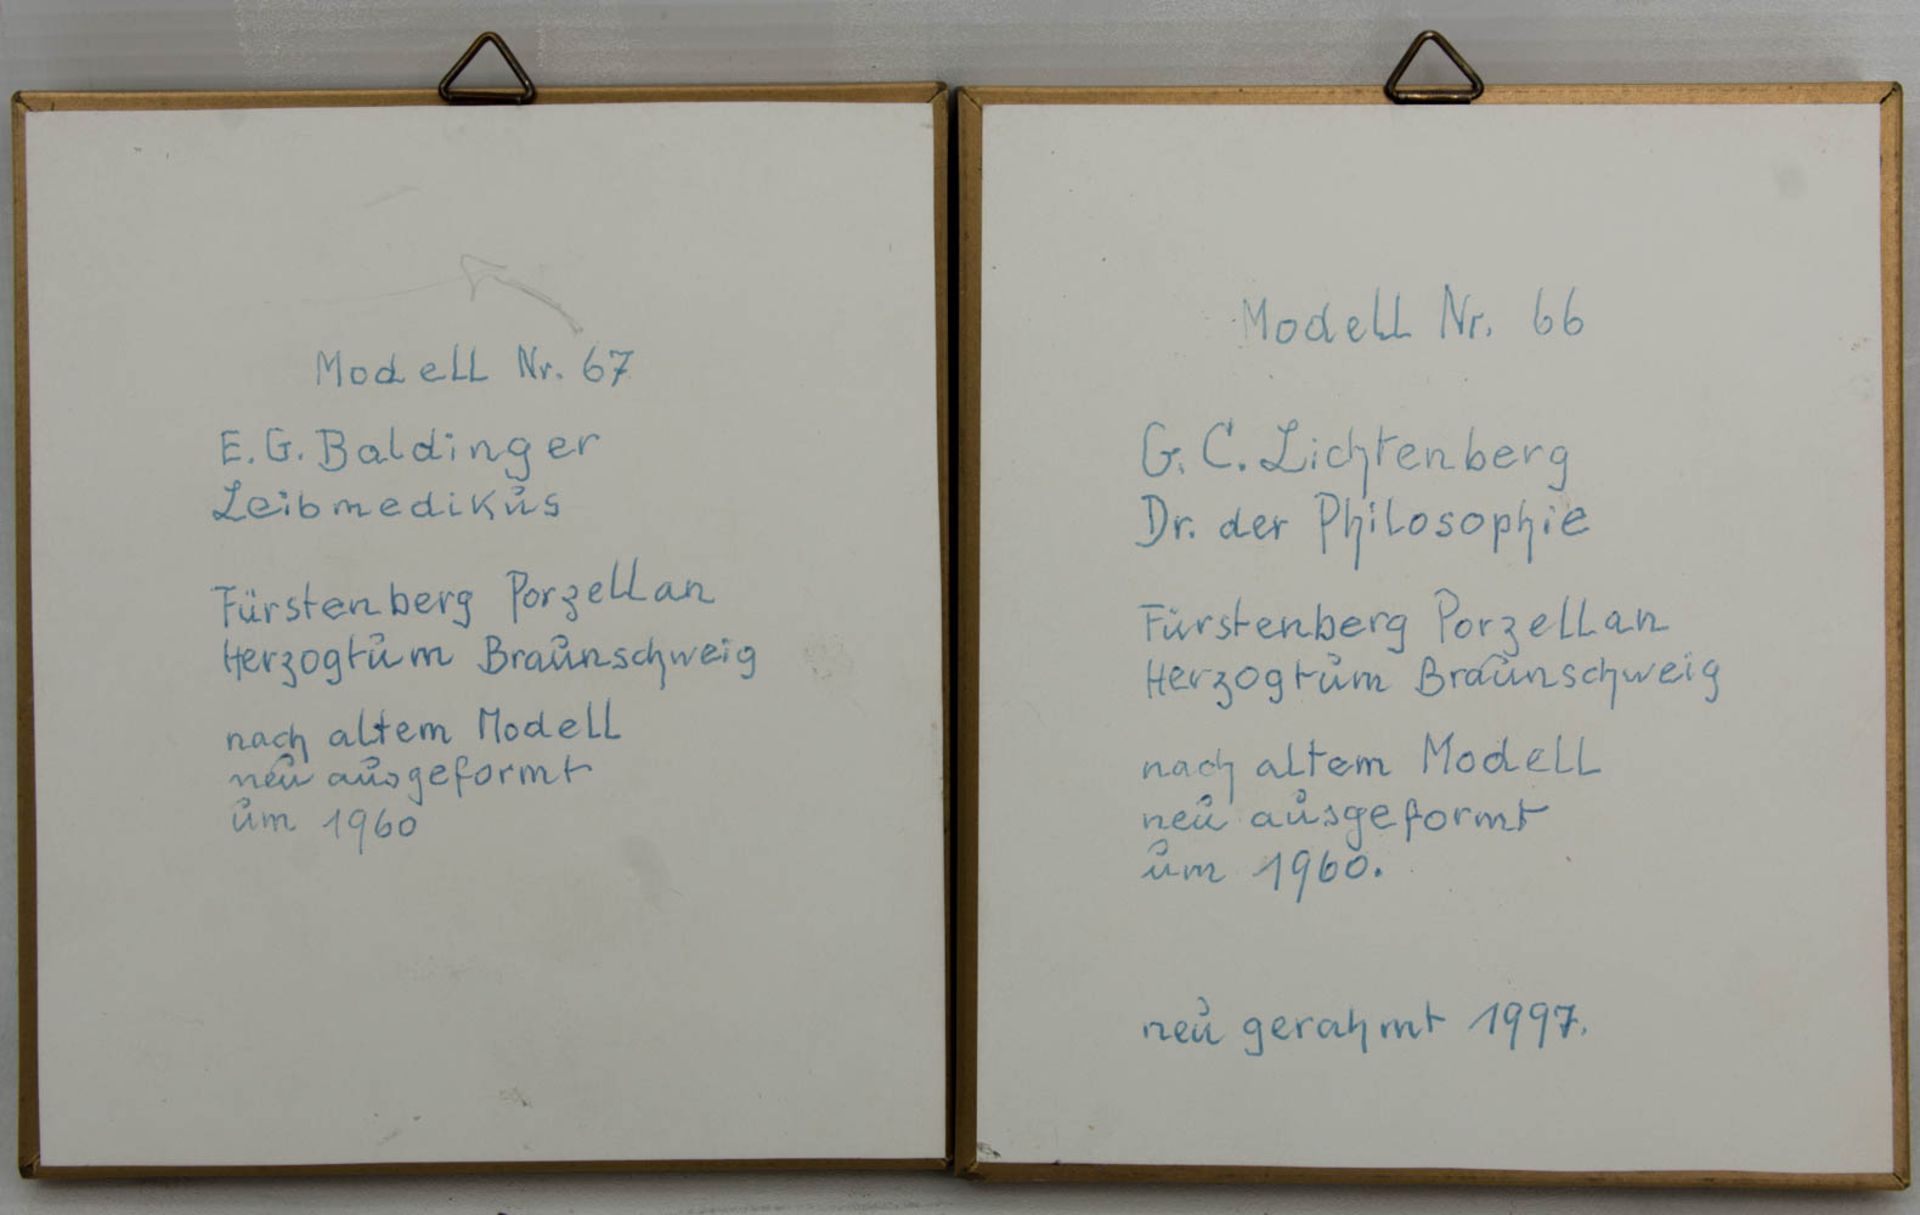 Modell Nr. 67
E. G. Baldinger
Leibmedikus
Fürstenberg Porzellan
Herzogtum Braunschweig
nach altem Modell
neu ausgeformt
um 1960
Modell Nr. 66
G. C. Lichtenberg
Dr. der Philosophie
Fürstenberg Porzellan
Herzogtum Braunschweig
nach altem Modell
neu ausgeformt
um 1960.
neu gerahmt 1997.